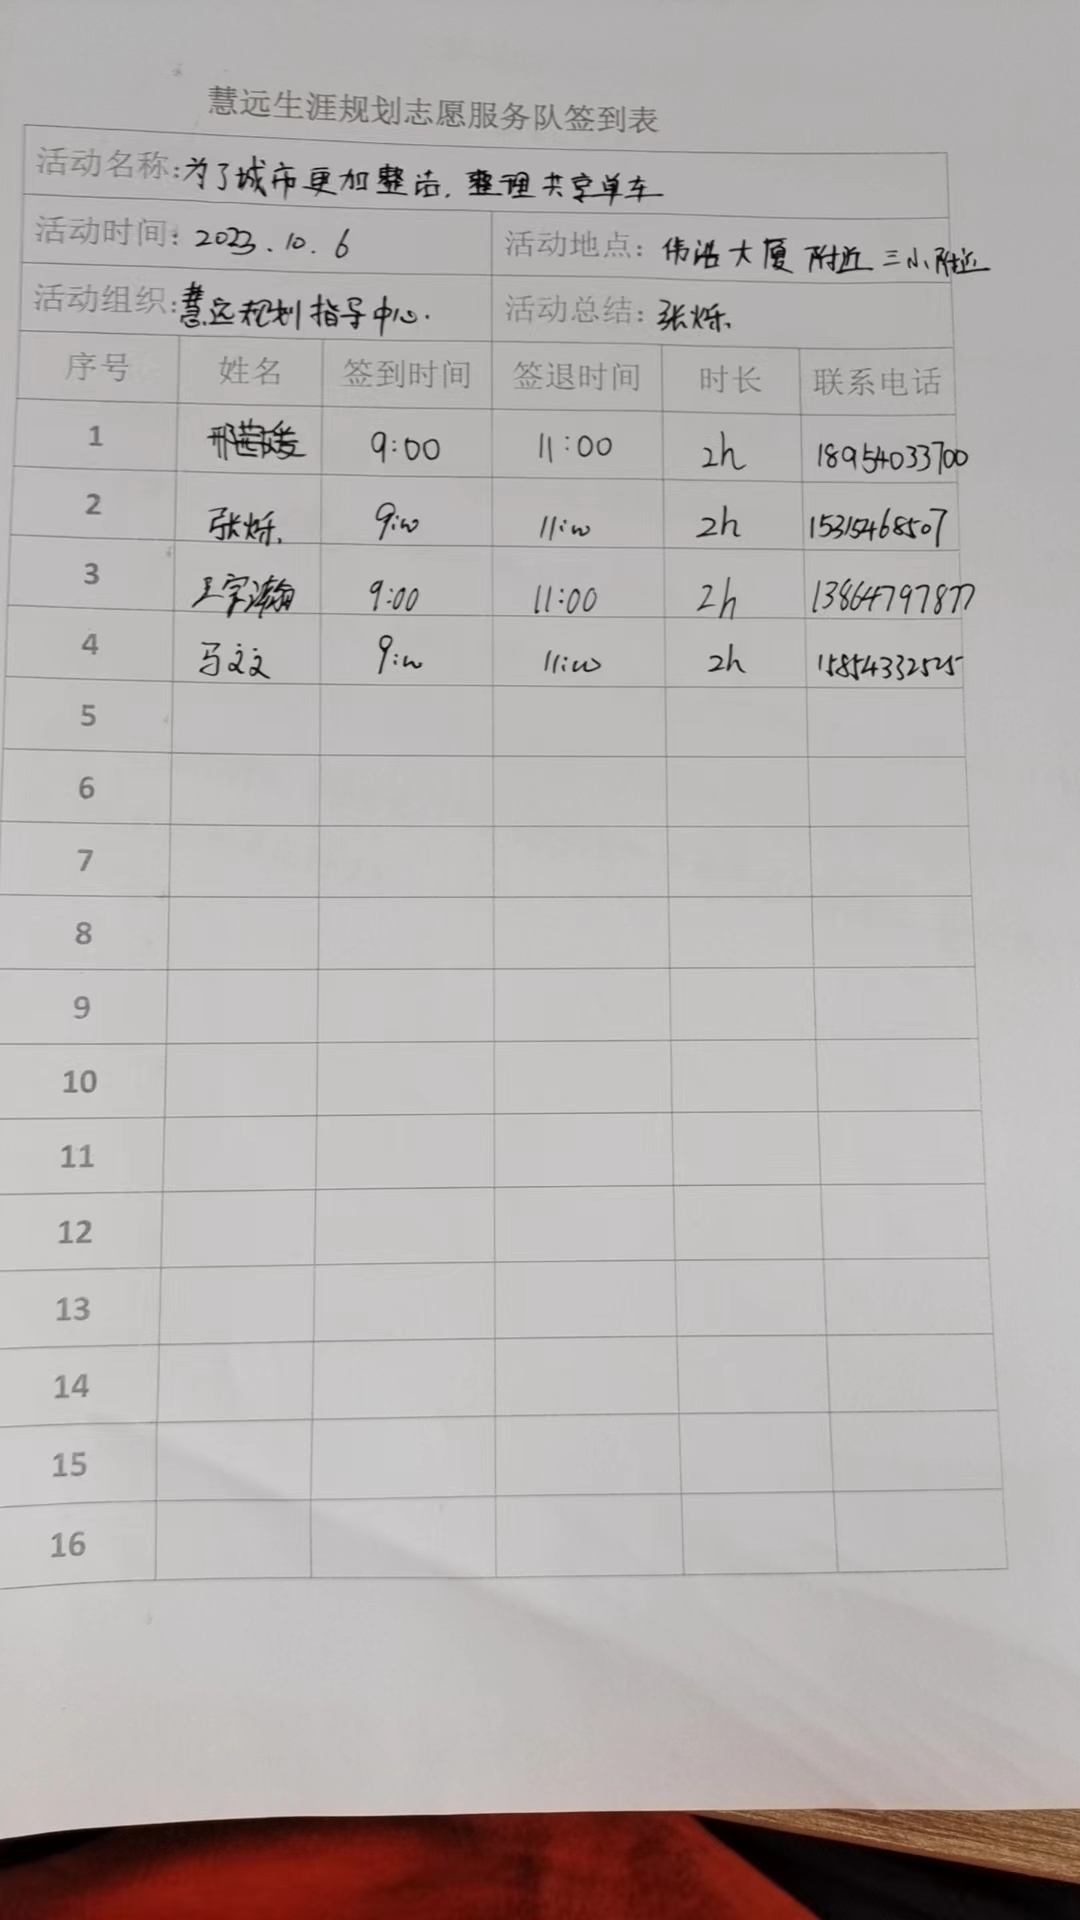 慧远生涯规划志愿服务队签到表
活动名称:为了城市更加整洁,整理共享单车
活动时间:2023.10.6 活动地点:伟浩大厦附近 三小附近
活动组织:慧远规划指导中心. 活动总结:张烁.
序号 姓名 签到时间 签退时间 时长 联系电话
1 9:00 11:00 2h 18954033700
2 张烁. 9:00 11:00 2h 15315468507
3 王宇瀚 9:00 11:00 2h 13864797877
4 马文文 9:00 11:00 2h 15854332525
5
6
7
8
9
10
11
12
13
14
15
16